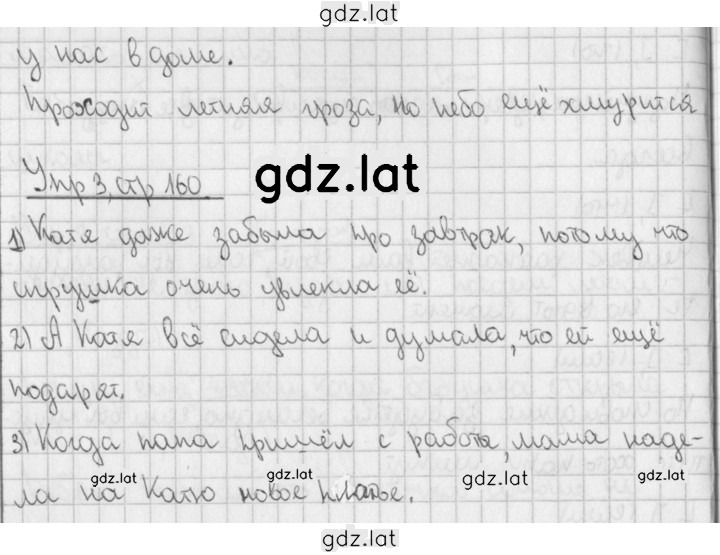 gdz.lat
у нас в доме.
Проходит летняя гроза, но небо ещё хмурится
Упр 3, стр 160.
gdz.lat
1) Катя даже забыла про завтрак, потому что
игрушка очень увлекла её.
2) А Катя всё сидела и думала, что ей ещё
подарят.
3) Когда папа пришёл с работы, мама наде-
ла на Катю новое платье.
gdz.lat
gdz.lat
gdz.lat
gdz.lat